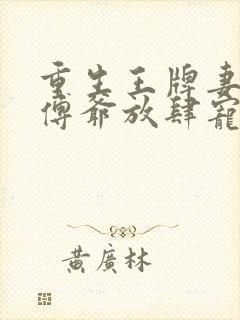 重生王牌妻
傅爺放肆寵
黃廣林